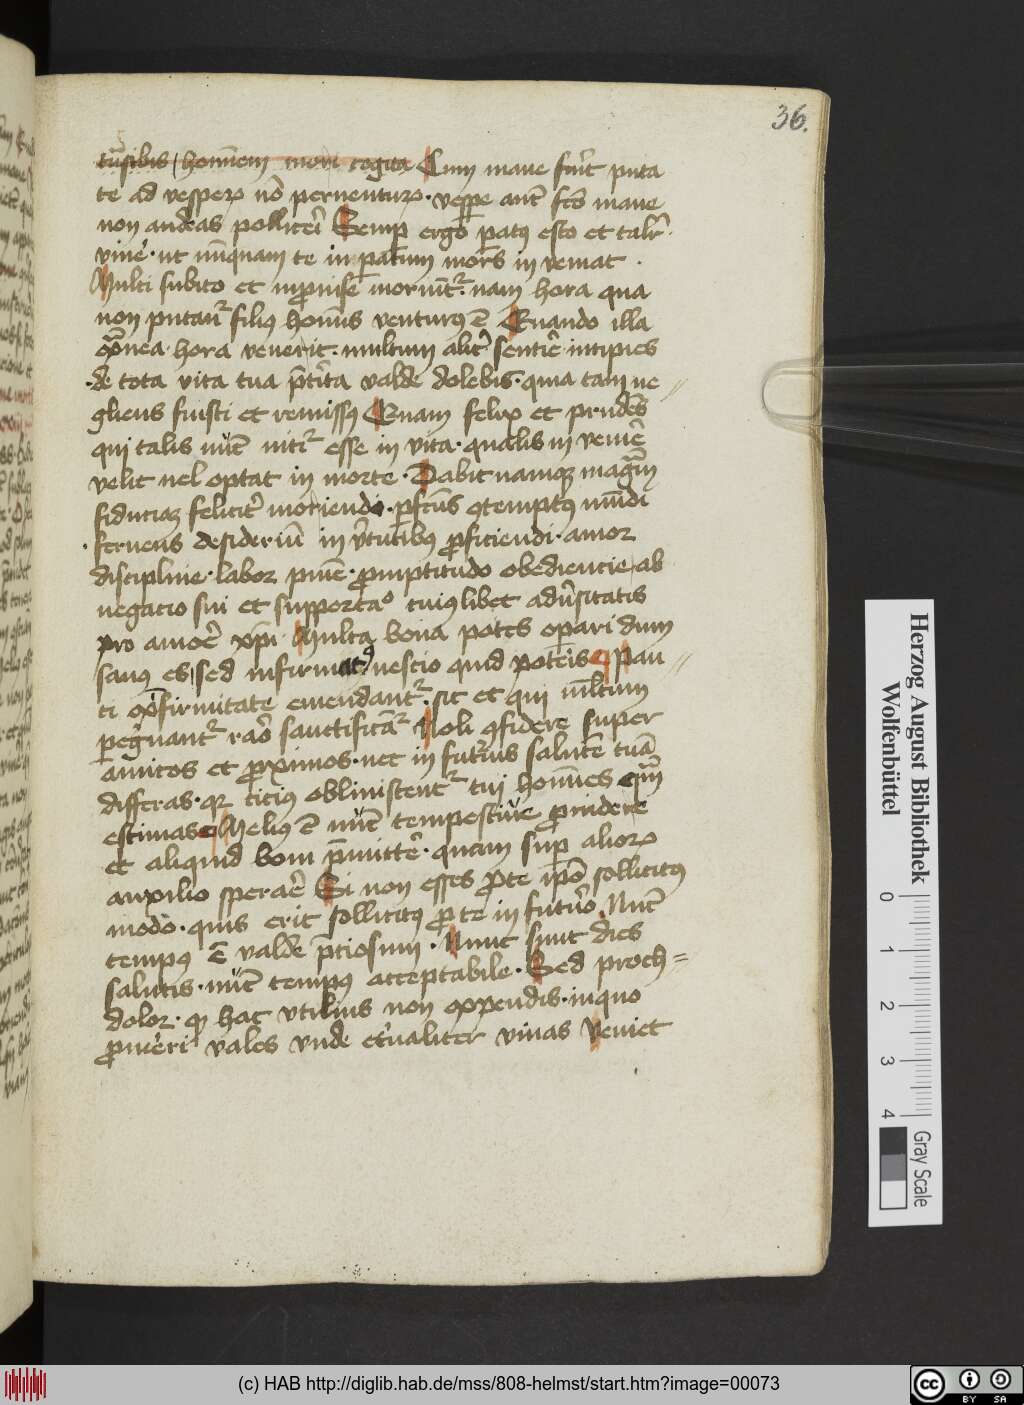 36.
tr̃sibis hominem mori cogita Cum mane fũit puta
te ad vesperꝝ nõ perventurꝝ. vespe aut̃ fc̃o mane
non audeas pollicer̃i Semp ergo patus esto et talit̃.
vive. ut nũquam te in patum mors in veniat.
Multi subito et inprovise moriũt̃. nam hora qua
non putatur filius hoĩs venturus ẽ Quando illa
ext̃ma hora venerit. multum alit̃ sentire incipies
de tota vita tua p̃t̃ita valde dolebis. quia tam ne
gliens fuisti et remissus Quam felix et prudẽs
qui talis nũc nitit̃ esse in vita. qualis in venir̃e
velit vel optat in morte. Dabit namqꝫ magnam
fiduciaꝫ felicit̃ moriendi. perfc̃us contemptus mũdi
fervens desideriũ in v̓tutibus proficiendi. amor
discipline. labor pnĩe. promptitudo obediencie ab
negacio sui et supportac̃o cuiuslibet adv̓sitatis
pro amor̃e xp̃i. Multa bona potes operari dum
sanus es, sed infirmatus nescio quid poteris Pau
ci ex infirmitate emendant̃. sic et qui mltum
peg̓nantur raro sanctificãt̃ Noli confidere super
amicos et proximos. nec in futurũs salutẽ tuã
differas. qꝛ citius obliviscent̃ tui homines quam
estimas Melius ẽ nũc tempestive providere
et aliquid boni p̃mitter̃e. quam sup alioꝝ
auxilio sperar̃e Si non esses pro te ipo sollicitus
modo. quis erit sollicitus pro te in futuro. Nũc
tempus ẽ valde p̃ciosum. Nunc sunt dies
salutis. nũc tempus acceptabile. Sed proch=
dolor. qꝫ hac utilius non expendis. in quo
prom̓eri vales unde et̓naliter vivas Veniet
Herzog August Bibliothek
Wolfenbüttel
0 1 2 3 4
Gray Scale
(c) HAB http://diglib.hab.de/mss/808-helmst/start.htm?image=00073
cc BY SA